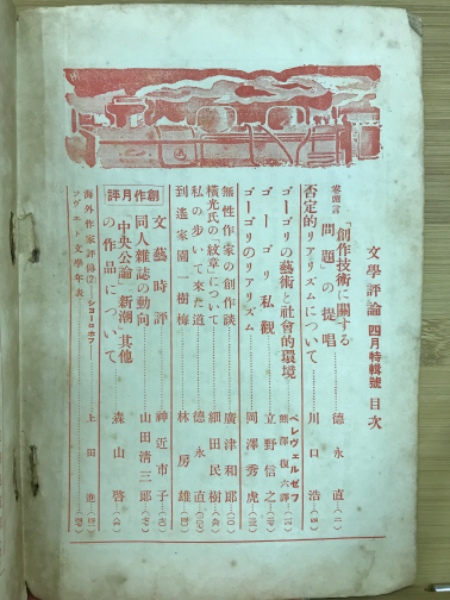 文學評論 四月特輯號 目次
卷頭言 「創作技術に關する
問題」の提唱 德永直
否定的リアリズムについて 川口浩
ゴーゴリの藝術と社會的環境 ペレヴェルゼフ 熊澤復六譯
ゴーゴリ私觀 立野信之
ゴーゴリのリアリズム 岡澤秀虎
無性作家の創作談 廣津和郎
橫光氏の「紋章」について 細田民樹
私の步いて來た道 德永直
到遙家園一樹梅 林房雄
創作月評
文藝時評 神近市子
同人雜誌の動向 山田清三郎
「中央公論」「新潮」其他
の作品について 森山啓
海外作家評傳(2) ショーロホフ 上田進
ソヴェト文學年表